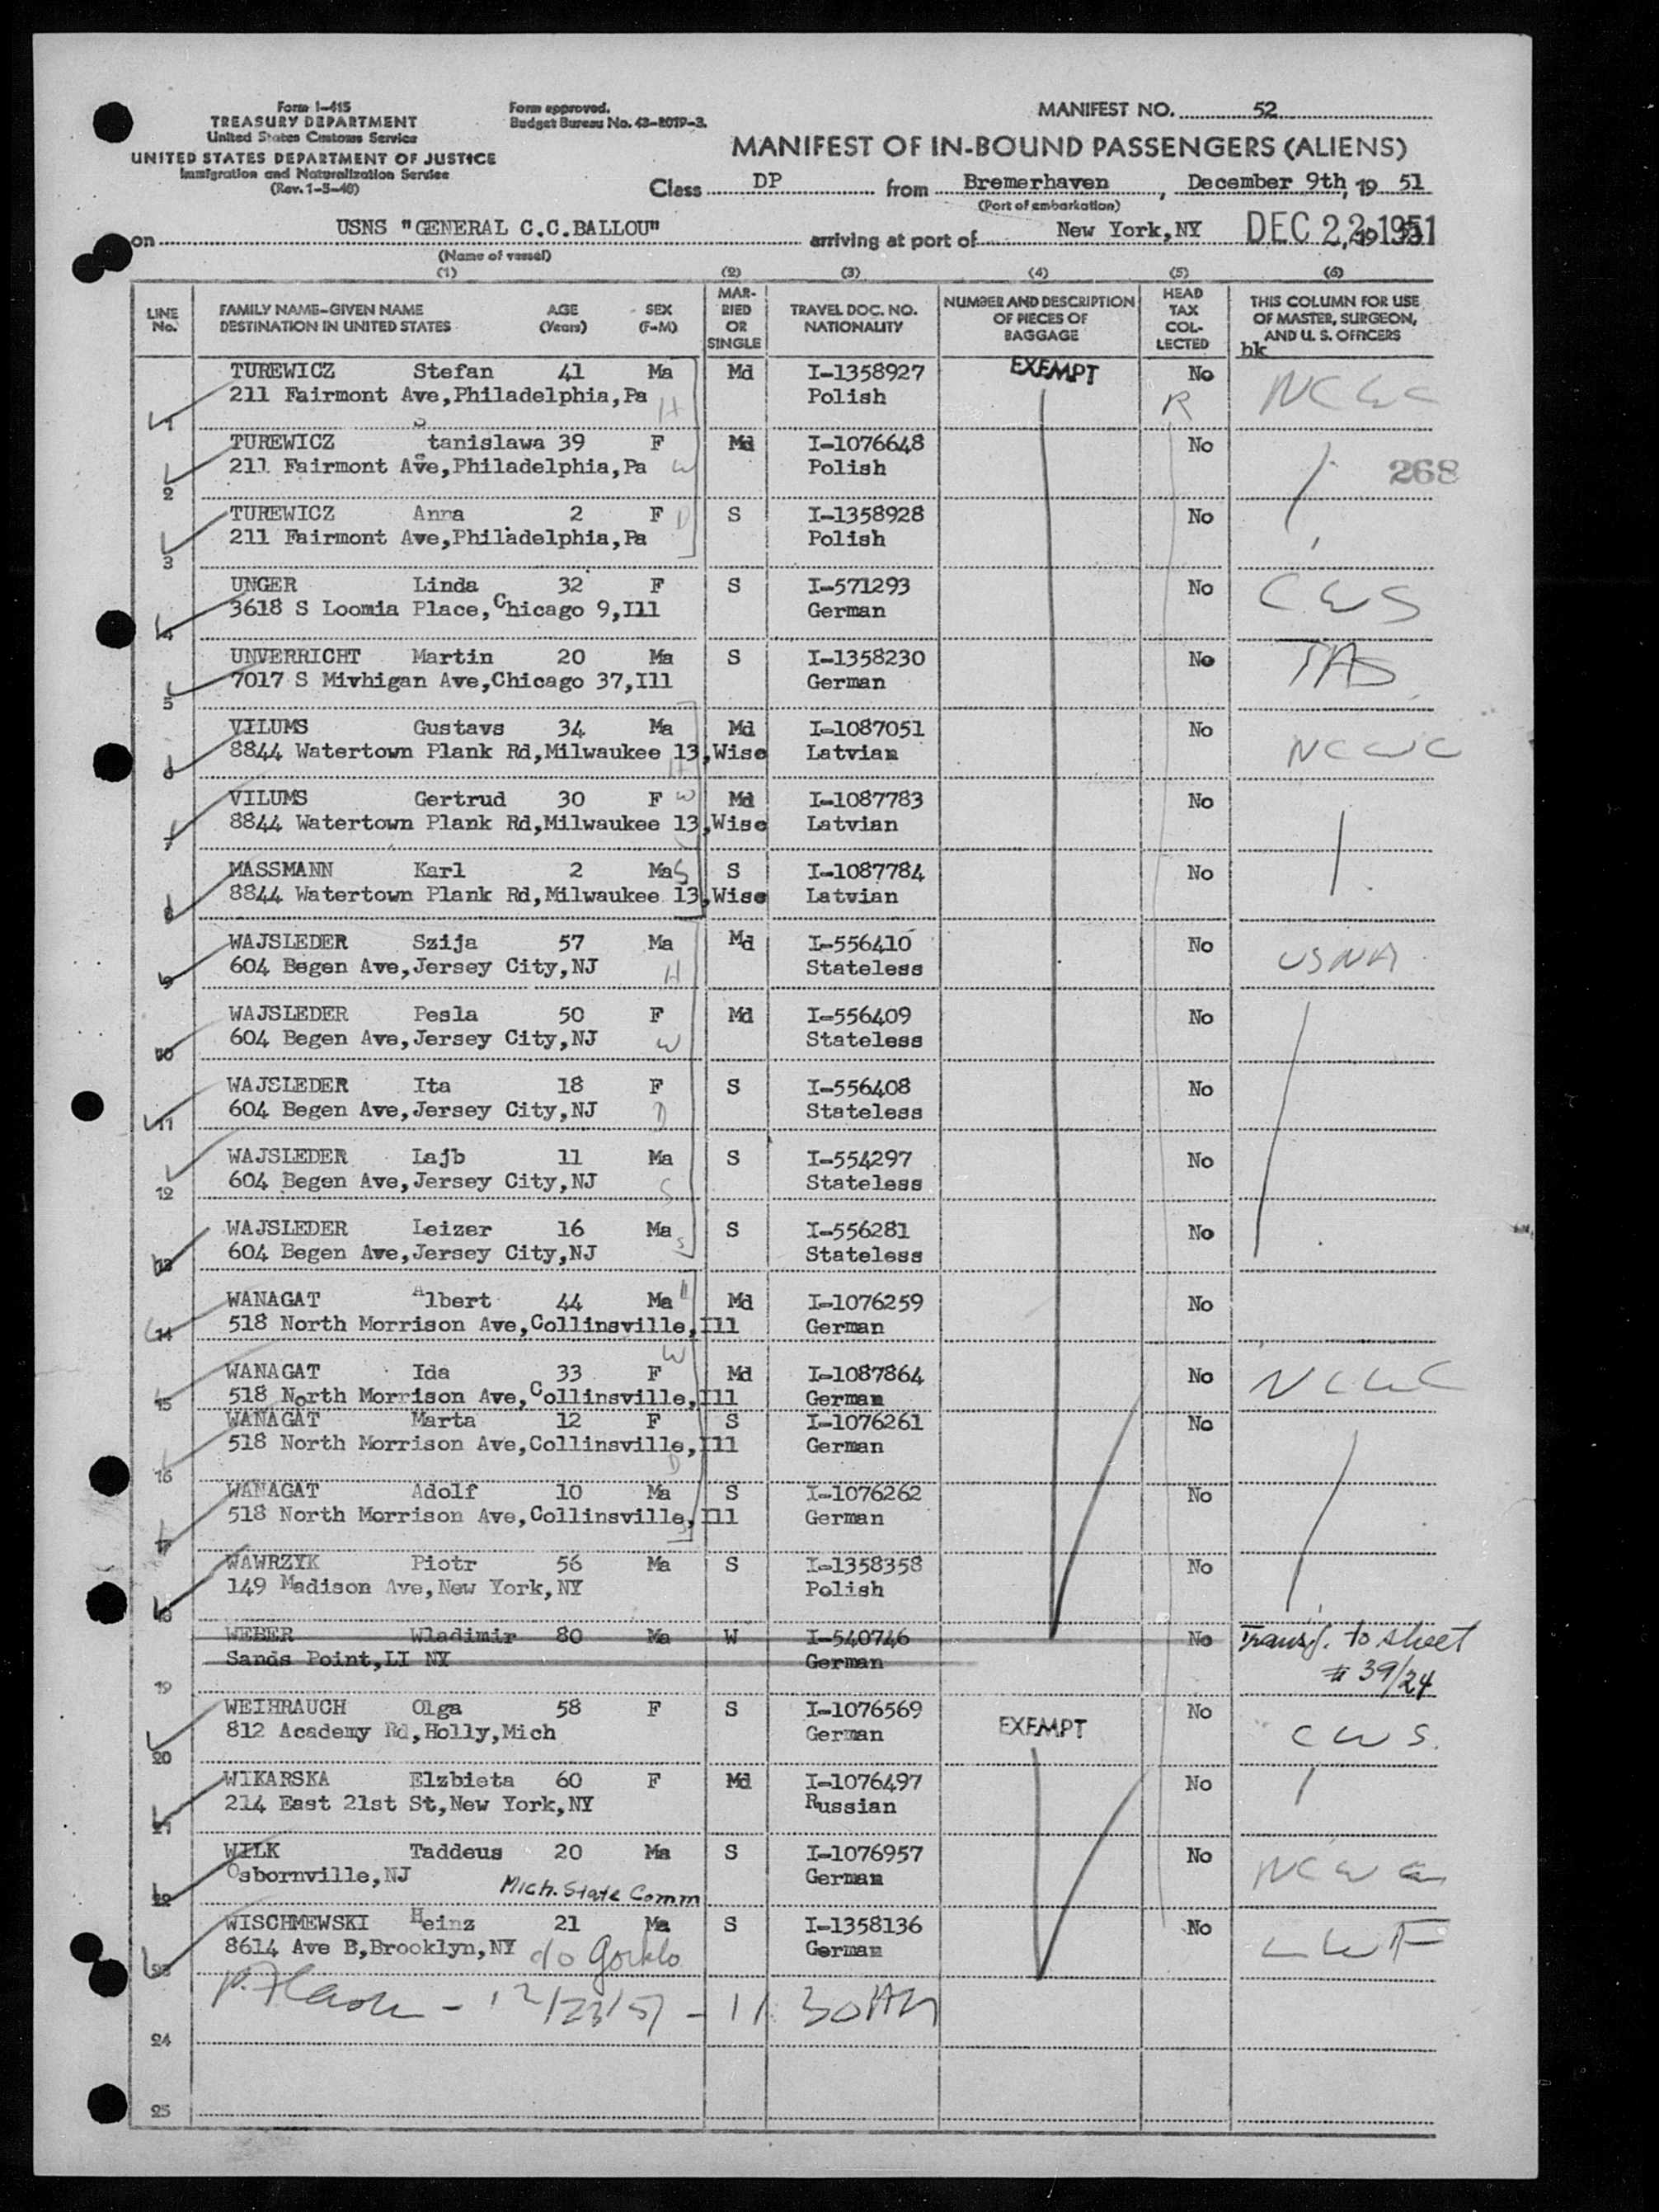 Form I-415
TREASURY DEPARTMENT
United States Customs Service
UNITED STATES DEPARTMENT OF JUSTICE
Immigration and Naturalization Service
(Rev. 1-5-48)
Form approved.
Budget Bureau No. 43-R019-3.
MANIFEST NO. 52
MANIFEST OF IN-BOUND PASSENGERS (ALIENS)
Class DP from Bremerhaven, December 9th, 19 51
(Port of embarkation)
on USNS "GENERAL C.C.BALLOU" arriving at port of New York,NY DEC 22 1951
(Name of vessel)
(1) (2) (3) (4) (5) (6)
LINE No. FAMILY NAME-GIVEN NAME AGE SEX MARRIED OR SINGLE TRAVEL DOC. NO. NUMBER AND DESCRIPTION OF PIECES OF BAGGAGE HEAD TAX COLLECTED THIS COLUMN FOR USE OF MASTER, SURGEON, AND U. S. OFFICERS
DESTINATION IN UNITED STATES (Years) (F-M) NATIONALITY
hk
TUREWICZ Stefan 41 Ma Md I-1358927 EXEMPT No NCWC
1 211 Fairmont Ave,Philadelphia,Pa H Polish R
TUREWICZ Stanislawa 39 F Md I-1076648 No
2 211 Fairmont Ave,Philadelphia,Pa W Polish 268
TUREWICZ Anna 2 F D S I-1358928 No
3 211 Fairmont Ave,Philadelphia,Pa Polish
UNGER Linda 32 F S I-571293 No CWS
4 3618 S Loomia Place,Chicago 9,Ill German
UNVERRICHT Martin 20 Ma S I-1358230 No
5 7017 S Mivhigan Ave,Chicago 37,Ill German
VILUMS Gustavs 34 Ma Md I-1087051 No NCWC
6 8844 Watertown Plank Rd,Milwaukee 13,Wisc Latvian
VILUMS Gertrud 30 F W Md I-1087783 No
7 8844 Watertown Plank Rd,Milwaukee 13,Wisc Latvian
MASSMANN Karl 2 Ma S S I-1087784 No
8 8844 Watertown Plank Rd,Milwaukee 13,Wisc Latvian
WAJSLEDER Szija 57 Ma Md I-556410 No USNA
9 604 Begen Ave,Jersey City,NJ H Stateless
WAJSLEDER Pesla 50 F Md I-556409 No
10 604 Begen Ave,Jersey City,NJ W Stateless
WAJSLEDER Ita 18 F S I-556408 No
11 604 Begen Ave,Jersey City,NJ D Stateless
WAJSLEDER Lajb 11 Ma S I-554297 No
12 604 Begen Ave,Jersey City,NJ S Stateless
WAJSLEDER Leizer 16 Ma S S I-556281 No
13 604 Begen Ave,Jersey City,NJ Stateless
WANAGAT Albert 44 Ma H Md I-1076259 No
14 518 North Morrison Ave,Collinsville,Ill German
WANAGAT Ida 33 F W Md I-1087864 No NCWC
15 518 North Morrison Ave,Collinsville,Ill German
WANAGAT Marta 12 F S I-1076261 No
16 518 North Morrison Ave,Collinsville,Ill D German
WANAGAT Adolf 10 Ma S I-1076262 No
17 518 North Morrison Ave,Collinsville,Ill German
WAWRZYK Piotr 56 Ma S I-1358358 No
18 149 Madison Ave,New York,NY Polish
WEBER Wladimir 80 Ma W I-540746 No Transf. to sheet
19 Sands Point,LI NY German # 39/24
WEIHRAUCH Olga 58 F S I-1076569 EXEMPT No CWS.
20 812 Academy Rd,Holly,Mich German
WIKARSKA Elzbieta 60 F Md I-1076497 No
21 214 East 21st St,New York,NY Russian
WILK Taddeus 20 Ma S I-1076957 No NCWC
22 Osbornville,NJ Mich. State Comm German
WISCHMEWSKI Heinz 21 Ma S I-1358136 No LWF
23 8614 Ave B,Brooklyn,NY German
- 12/23/51 - 11 30 AM
24
25